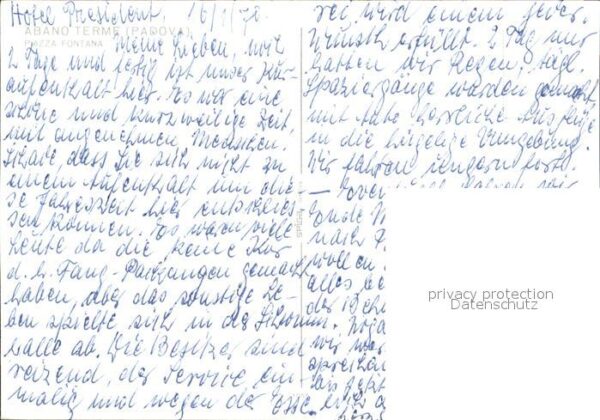 Hotel President. 16/1/70.
ABANO TERME (PADOVA)
PIAZZA FONTANA
Meine Lieben, noch
2 Tage und fertig ist unser Kur-
aufenthalt hier. Es war eine
schöne und kurzweilige Zeit,
mit angenehmen Menschen.
Schade, dass Sie sich nicht zu
einem Aufenthalt um die-
se Jahreszeit hier entschlies-
sen können. Es waren viele
Leute da die keine Kur
d. h. Fango-Packungen gemacht
haben, aber das sonstige Le-
ben spielte sich in der Schwimm-
halle ab. Die Besitzer sind
reizend, der Service ein-
malig und wegen der Esse-
rei wird einem jeder
Wunsch erfüllt. 2 Tag nur
hatten wir Regen, tägl.
Spaziergänge wurden gemacht,
mit Auto herrliche Ausflüge
in die hügelige Umgebung.
Wir fahren ungern fort.
Ende
nach
wollen.
alles
der
wir
sprechen
bis jetzt
privacy protection
Datenschutz